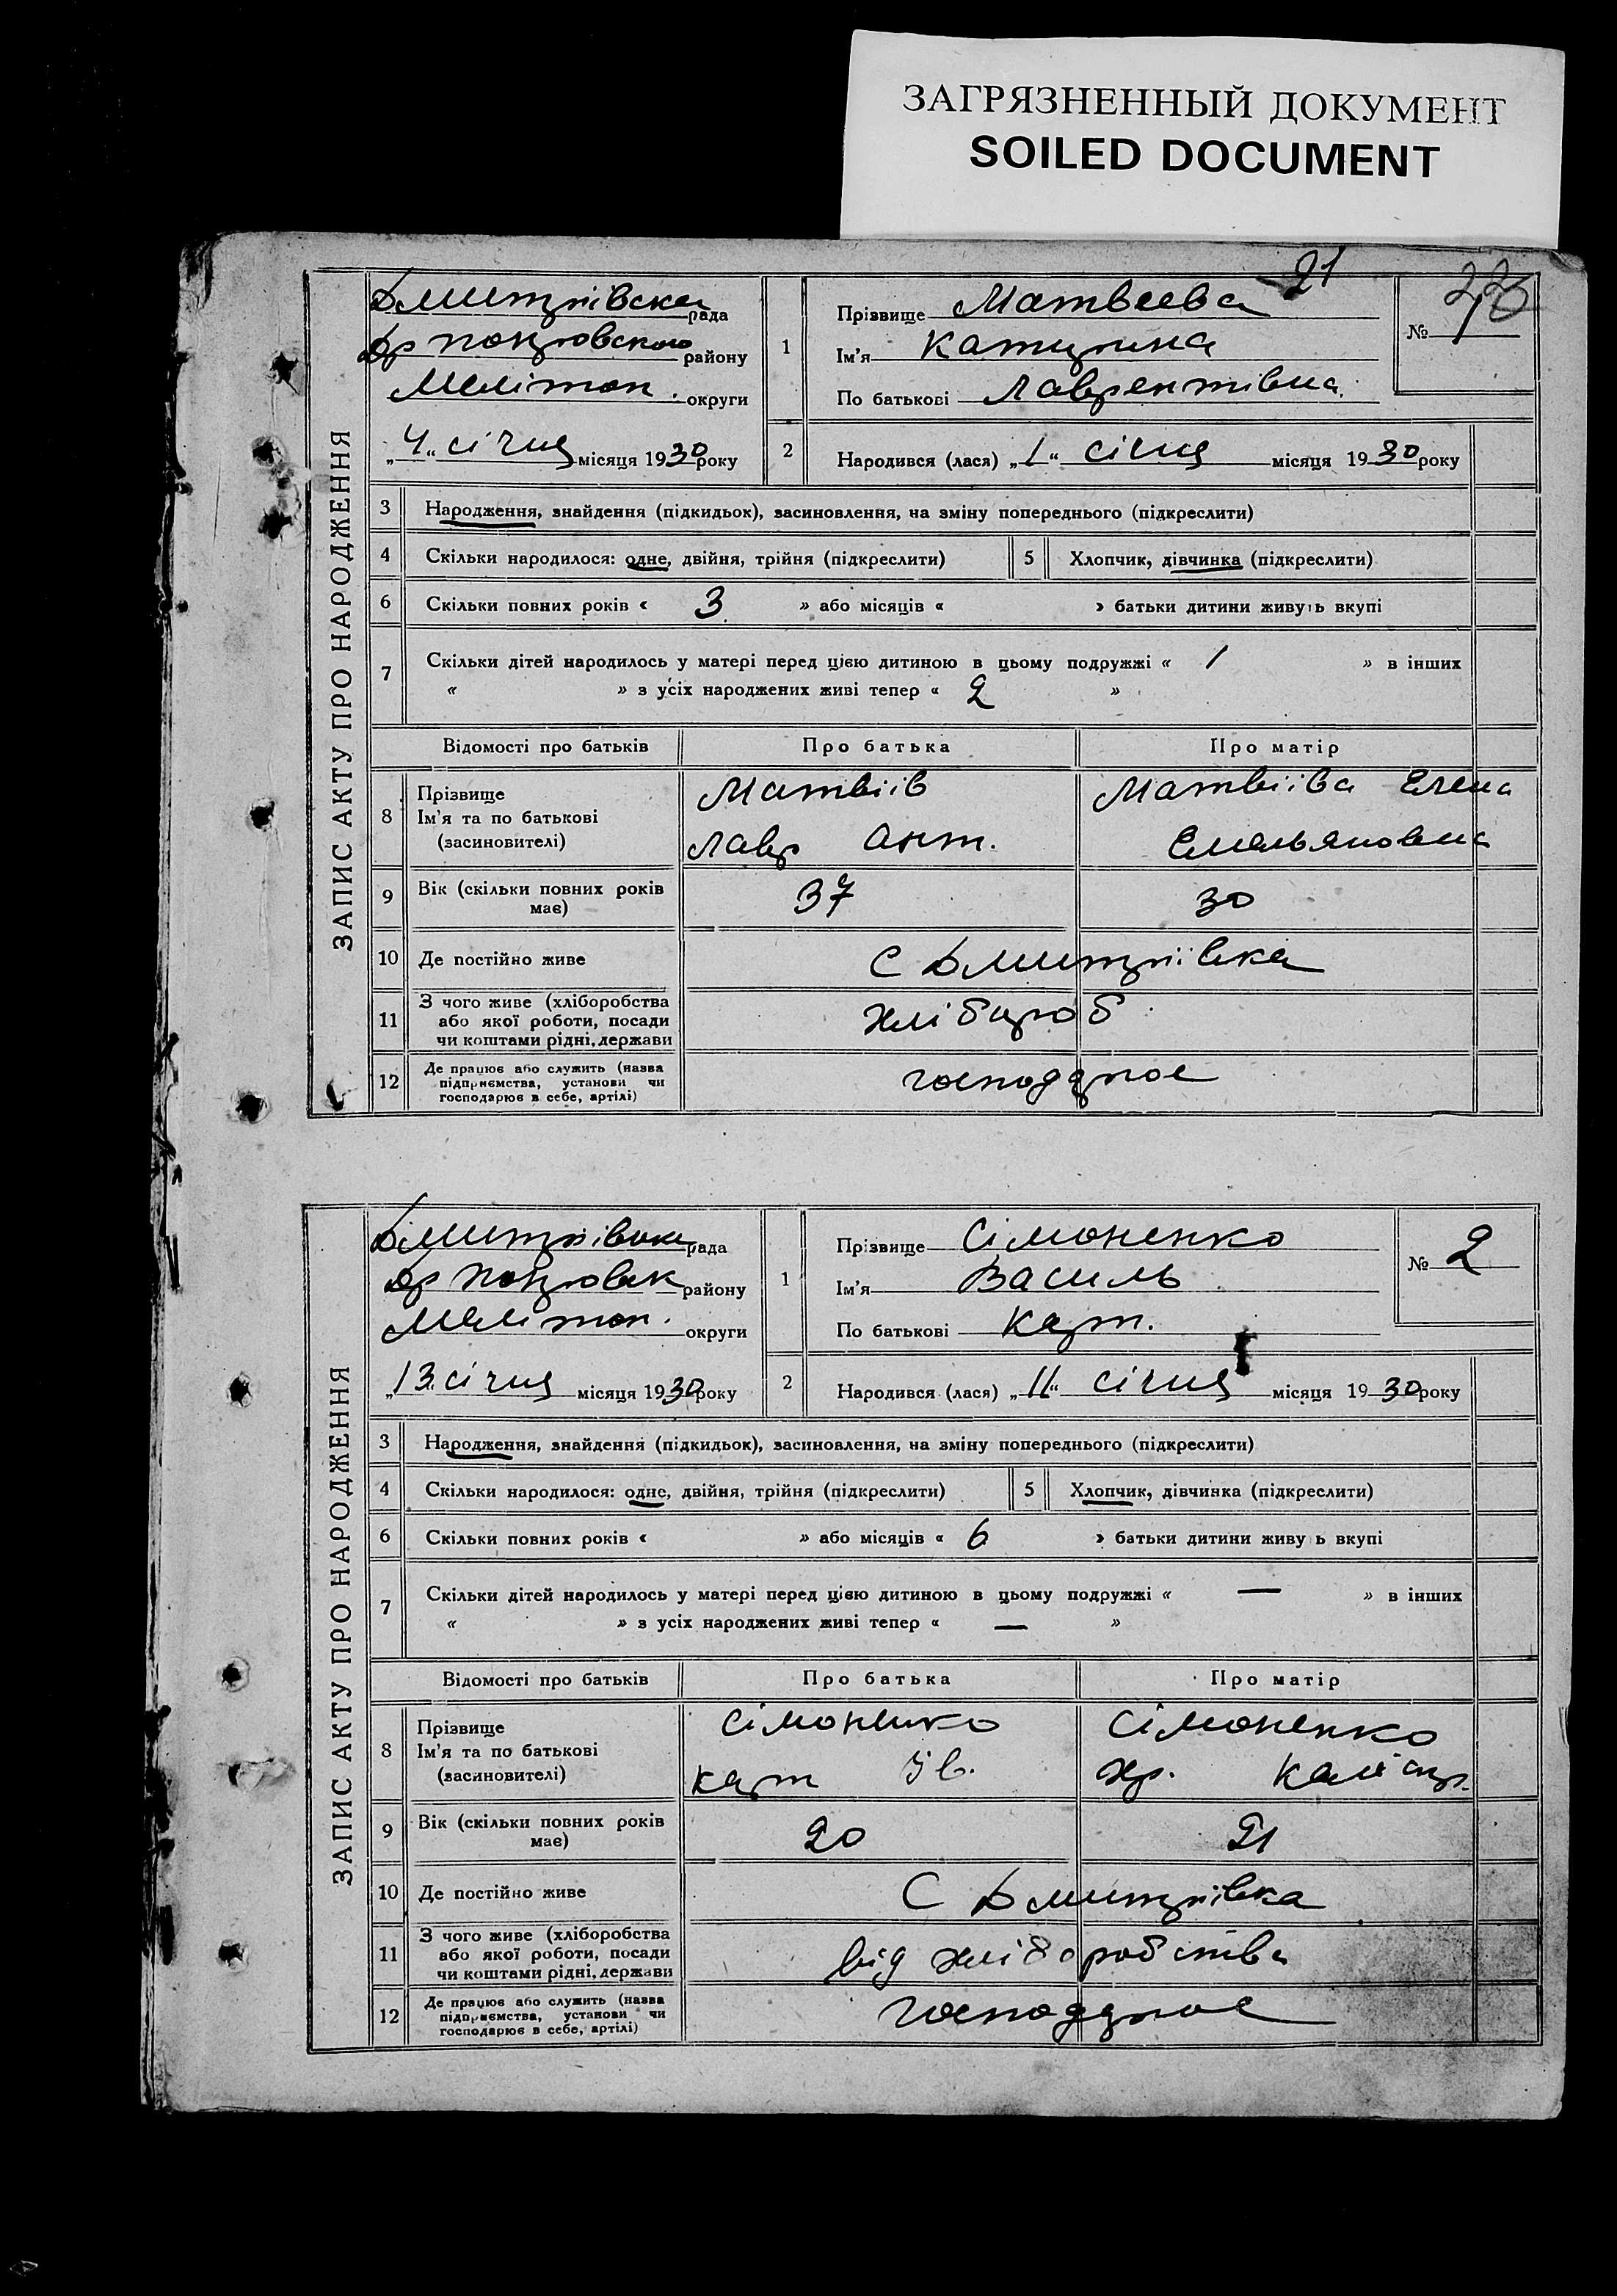 ЗАГРЯЗНЕННЫЙ ДОКУМЕНТ
SOILED DOCUMENT
21
ЗАПИС АКТУ ПРО НАРОДЖЕННЯ
Дмитрівска рада
Др Покровского району
Мелітоп. округи
„4“ січня місяця 1930 року
1
Прізвище Матвеева
Ім'я Катирина
По батькові Лаврентівна
№ 1
2 Народився (лася) „1“ січня місяця 1930 року
3 Народження, знайдення (підкидьок), засиновлення, на зміну попереднього (підкреслити)
4 Скільки народилося: одне, двійня, трійня (підкреслити) 5 Хлопчик, дівчинка (підкреслити)
6 Скільки повних років « 3 » або місяців « » батьки дитини живуть вкупі
7 Скільки дітей народилось у матері перед цією дитиною в цьому подружжі « 1 » в інших
« » з усіх народжених живі тепер « 2 »
Відомості про батьків Про батька Про матір
8 Прізвище
Ім'я та по батькові
(засиновителі)
Матвіів
Лавр Ант.
Матвііва Елена
Емельяновна
9 Вік (скільки повних років має) 37 30
10 Де постійно живе С Дмитріівка
11 З чого живе (хліборобства
або якої роботи, посади
чи коштами рідні, держави
хлібороб
12 Де працює або служить (назва
підприємства, установи чи
господарює в себе, артілі)
ЗАПИС АКТУ ПРО НАРОДЖЕННЯ
Дмитрівска рада
Др Покровск району
Мелітоп. округи
„13“ січня місяця 1930 року
1
Прізвище Сімоненко
Ім'я Василь
По батькові Карт.
№ 2
2 Народився (лася) „11“ січня місяця 1930 року
3 Народження, знайдення (підкидьок), засиновлення, на зміну попереднього (підкреслити)
4 Скільки народилося: одне, двійня, трійня (підкреслити) 5 Хлопчик, дівчинка (підкреслити)
6 Скільки повних років « » або місяців « 6 » батьки дитини живуть вкупі
7 Скільки дітей народилось у матері перед цією дитиною в цьому подружжі « — » в інших
« » з усіх народжених живі тепер « — »
Відомості про батьків Про батька Про матір
8 Прізвище
Ім'я та по батькові
(засиновителі)
Сімоненко
Карт Ів.
Сімоненко
Хр.
9 Вік (скільки повних років має) 20 21
10 Де постійно живе С Дмитрівка
11 З чого живе (хліборобства
або якої роботи, посади
чи коштами рідні, держави
від хліборобства
12 Де працює або служить (назва
підприємства, установи чи
господарює в себе, артілі)